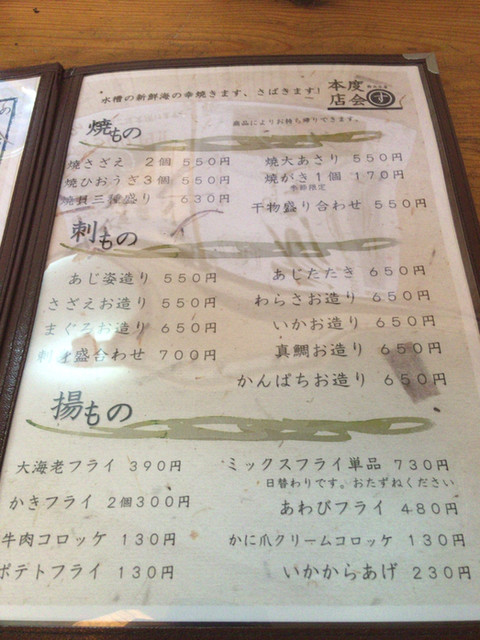 水槽の新鮮海の幸焼きます、さばきます!
本店
度会
焼もの
商品によりお持ち帰りできます。
焼さざえ 2個 550円
焼ひおうぎ3個 550円
焼貝三種盛り 630円
焼大あさり 550円
焼がき1個 170円
季節限定
干物盛り合わせ 550円
刺もの
あじ姿造り 550円
さざえお造り 550円
まぐろお造り 650円
刺身盛合わせ 700円
あじたたき 650円
わらさお造り 650円
いかお造り 650円
真鯛お造り 650円
かんぱちお造り 650円
揚もの
大海老フライ 390円
かきフライ 2個300円
牛肉コロッケ 130円
ポテトフライ 130円
ミックスフライ単品 730円
日替わりです。おたずねください
あわびフライ 480円
かに爪クリームコロッケ 130円
いかからあげ 230円